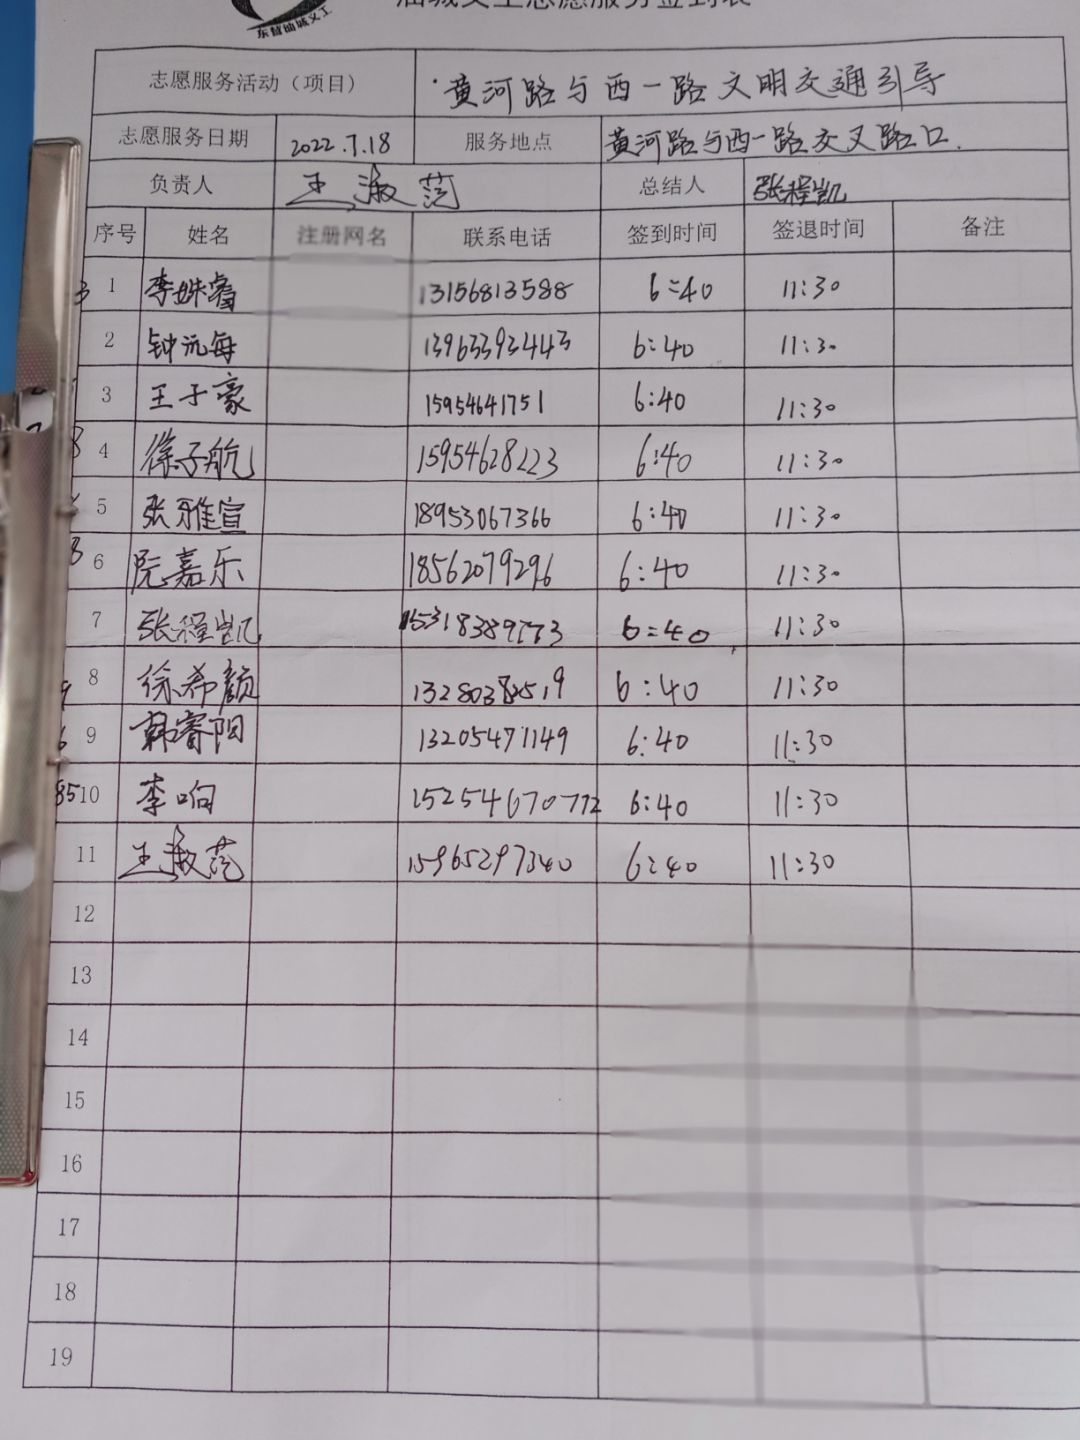 东营油城义工
油城义工志愿服务签到表
志愿服务活动（项目） 黄河路与西一路文明交通引导
志愿服务日期 2022.7.18 服务地点 黄河路与西一路交叉路口.
负责人 王淑范 总结人 张程凯
序号 姓名 注册网名 联系电话 签到时间 签退时间 备注
1 李姝睿 13156813588 6:40 11:30
2 钟沅每 13963393443 6:40 11:30
3 王子豪 15954641751 6:40 11:30
4 徐子航 15954628223 6:40 11:30
5 张雅宣 18953067366 6:40 11:30
6 阮嘉乐 18562079296 6:40 11:30
7 张程凯 6:40 11:30
8 徐希颜 13280382519 6:40 11:30
9 韩睿阳 13205471149 6:40 11:30
10 李响 15254670772 6:40 11:30
11 王淑范 15965297340 6:40 11:30
12
13
14
15
16
17
18
19